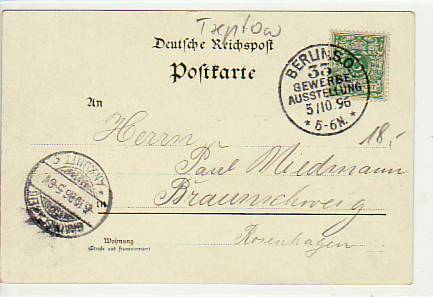 Treptow
Deutsche Reichspost
Postkarte
BERLIN S.O.
33
GEWERBE
AUSSTELLUNG
5/10.96
* 5-6N. *
An
Herrn
18,-
Paul Miedmann
in Braunschweig
Rosenhagen
Wohnung
(Straße und Hausnummer)
* ANKUNFT *
6.10.96.5-6V.
BRAUNSCHWEIG